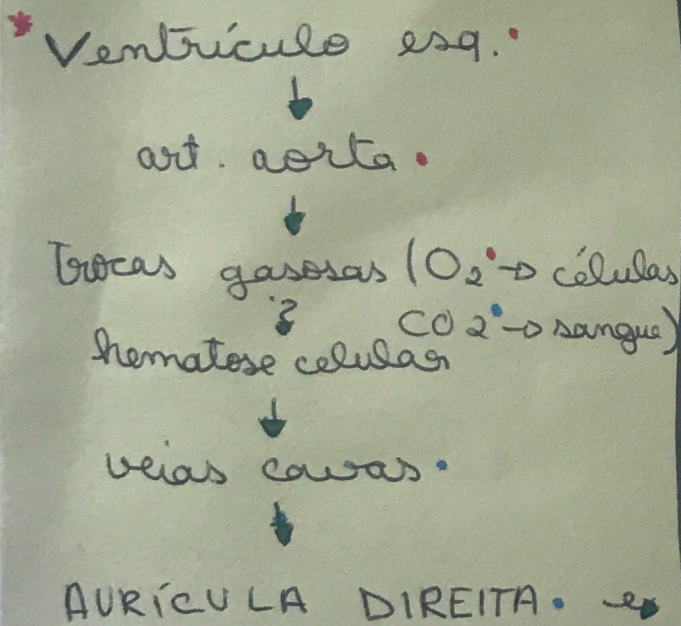 * Ventrículo esq.
↓
art. aorta
↓
Trocas gasosas (O2 → células
? CO2 → sangue)
hematose celular
↓
veias cavas
↓
AURÍCULA DIREITA →